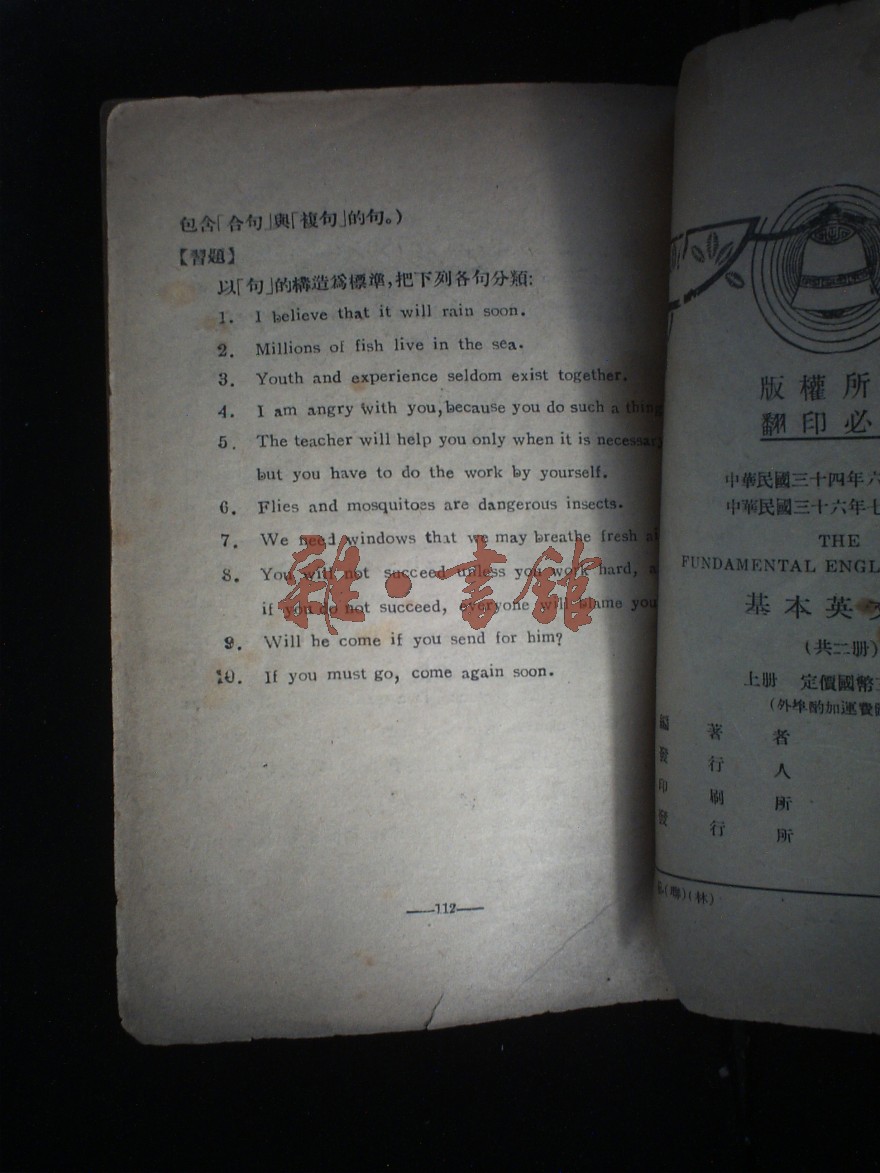 包含「合句」與「複句」的句。)
【習題】
以「句」的構造爲標準,把下列各句分類:
1. I believe that it will rain soon.
2. Millions of fish live in the sea.
3. Youth and experience seldom exist together.
4. I am angry with you, because you do such a thing
5. The teacher will help you only when it is necessary
but you have to do the work by yourself.
6. Flies and mosquitoes are dangerous insects.
7. We need windows that we may breathe fresh
8. You will not succeed unless you work hard,
if you do not succeed, everyone will blame you
9. Will he come if you send for him?
10. If you must go, come again soon.
—112—
雜·書館
版權所
翻印必
中華民國三十四年六
中華民國三十六年七
THE
FUNDAMENTAL ENGL
基本英
(共二册)
上册 定價國幣
(外埠酌加運費
編著者
發行人
印刷所
發行所
(聯)(林)